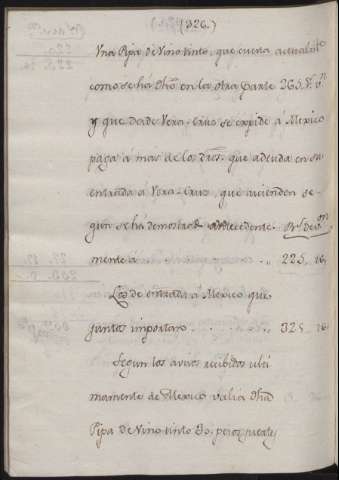 (326.)
Una Pipa de Vino tinto, que cuesta actualmte
como se há dho en la otra parte 265. Rs. Vn
y que desde Vera-Cruz se expide á Mexico
paga á mas de los dros. que adeuda en su
entrada á Vera-Cruz que acienden se-
gun se há demostrado antecedente- Rs. de Von
mente á . . . . . . . . . 225, 16,
Los de entrada á Mexico que
juntos importan . . . . . . . 328, 16
Segun los avisos recibidos ulti
mamente de Mexico valia dha
Pipa de Vino tinto 30. pesos fuertes